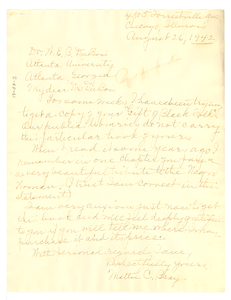 Chicago, Illinois
August 26, 1942
Dr. W. E. B. DuBois
Atlanta University
Atlanta, Georgia
My dear Dr. DuBois
For some weeks I have been trying
to get a copy of your "Gift of Black Folk".
Our public libraries do not carry
this particular book of yours.
When I read it some years ago I
remember in one chapter you gave
a very beautiful tribute to the Negro
Woman. I trust I am correct in this
statement.
I am very anxious just now to get
the book and will feel deeply grateful
to you if you will tell me where I can
purchase it and its price.
With personal regards, I am,
Respectfully yours,
Mattie C. Gray